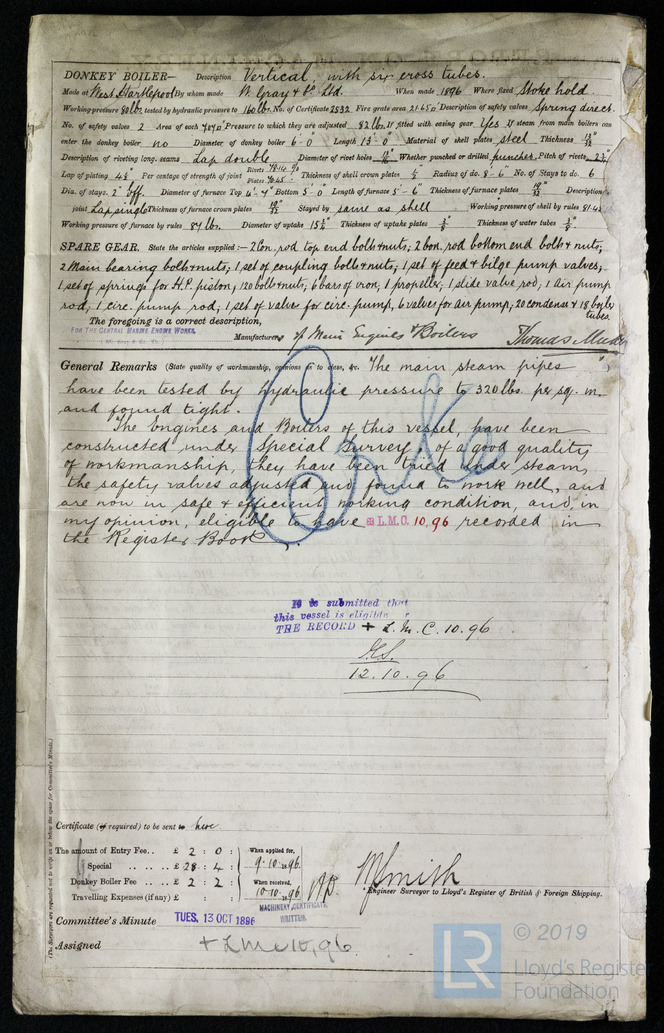 DONKEY BOILER— Description Vertical, with six cross tubes.
Made at West Hartlepool By whom made W. Gray & Co. Ltd. When made 1896 Where fixed Stoke hold
Working pressure 80 lb. tested by hydraulic pressure to 160 lb. No. of Certificate 2532 Fire grate area Description of safety valves Spring direct.
No. of safety valves 2 Area of each Pressure to which they are adjusted 82 lb. If fitted with easing gear Yes If steam from main boilers can
enter the donkey boiler no Diameter of donkey boiler 6'-0" Length 13'-0" Material of shell plates steel Thickness
Description of riveting long. seams Lap double Diameter of rivet holes Whether punched or drilled punched Pitch of rivets
Lap of plating Per centage of strength of joint Rivets Plates Thickness of shell crown plates Radius of do. No. of Stays to do. 6
Dia. of stays. 2" eff. Diameter of furnace Top Bottom 5'-0" Length of furnace 5'-6" Thickness of furnace plates Description of
joint Lap single Thickness of furnace crown plates Stayed by same as shell Working pressure of shell by rules
Working pressure of furnace by rules 84 lb. Diameter of uptake Thickness of uptake plates Thickness of water tubes
SPARE GEAR. State the articles supplied:— 2 Con. rod top end bolts & nuts; 2 con. rod bottom end bolts & nuts;
2 Main bearing bolts & nuts; 1 set of coupling bolts & nuts; 1 set of feed & bilge pump valves;
1 set of springs for H.P. piston, 120 bolts & nuts; 6 bars of iron; 1 propeller; 1 slide valve rod, 1 air pump
rod, 1 circ. pump rod; 1 set of valves for circ. pump, 6 valves for air pump; 20 condenser & 18 boiler
tubes.
The foregoing is a correct description,
FOR THE CENTRAL MARINE ENGINE WORKS.
Manufacturers of Main Engines & Boilers Thomas
General Remarks (State quality of workmanship, opinions as to class, &c. The main steam pipes
have been tested by hydraulic pressure to 320 lbs. per sq. in.
and found tight.
The Engines and Boilers of this vessel, have been
constructed under Special Survey, of a good quality
of workmanship, they have been tried under steam,
the safety valves adjusted and found to work well, and
are now in safe & efficient working condition, and, in
my opinion, eligible to have L.M.C. 10.96 recorded in
the Register Book.
It is submitted that
this vessel is eligible
THE RECORD + L.M.C. 10.96
12.10.96
(The Surveyors are requested not to write on or below the space for Committee's Minute.)
Certificate (if required) to be sent to here
The amount of Entry Fee.. £ 2 : 0 : When applied for,
Special .. .. .. £ 28 : 4 : 9.10.1896.
Donkey Boiler Fee .. .. £ 2 : 2 : When received,
Travelling Expenses (if any) £ : : 10.10.1896
Engineer Surveyor to Lloyd's Register of British & Foreign Shipping.
MACHINERY CERTIFICATE
WRITTEN
Committee's Minute TUES. 13 OCT 1896
Assigned + L.M.C. 10,96
LR © 2019
Lloyd's Register
Foundation